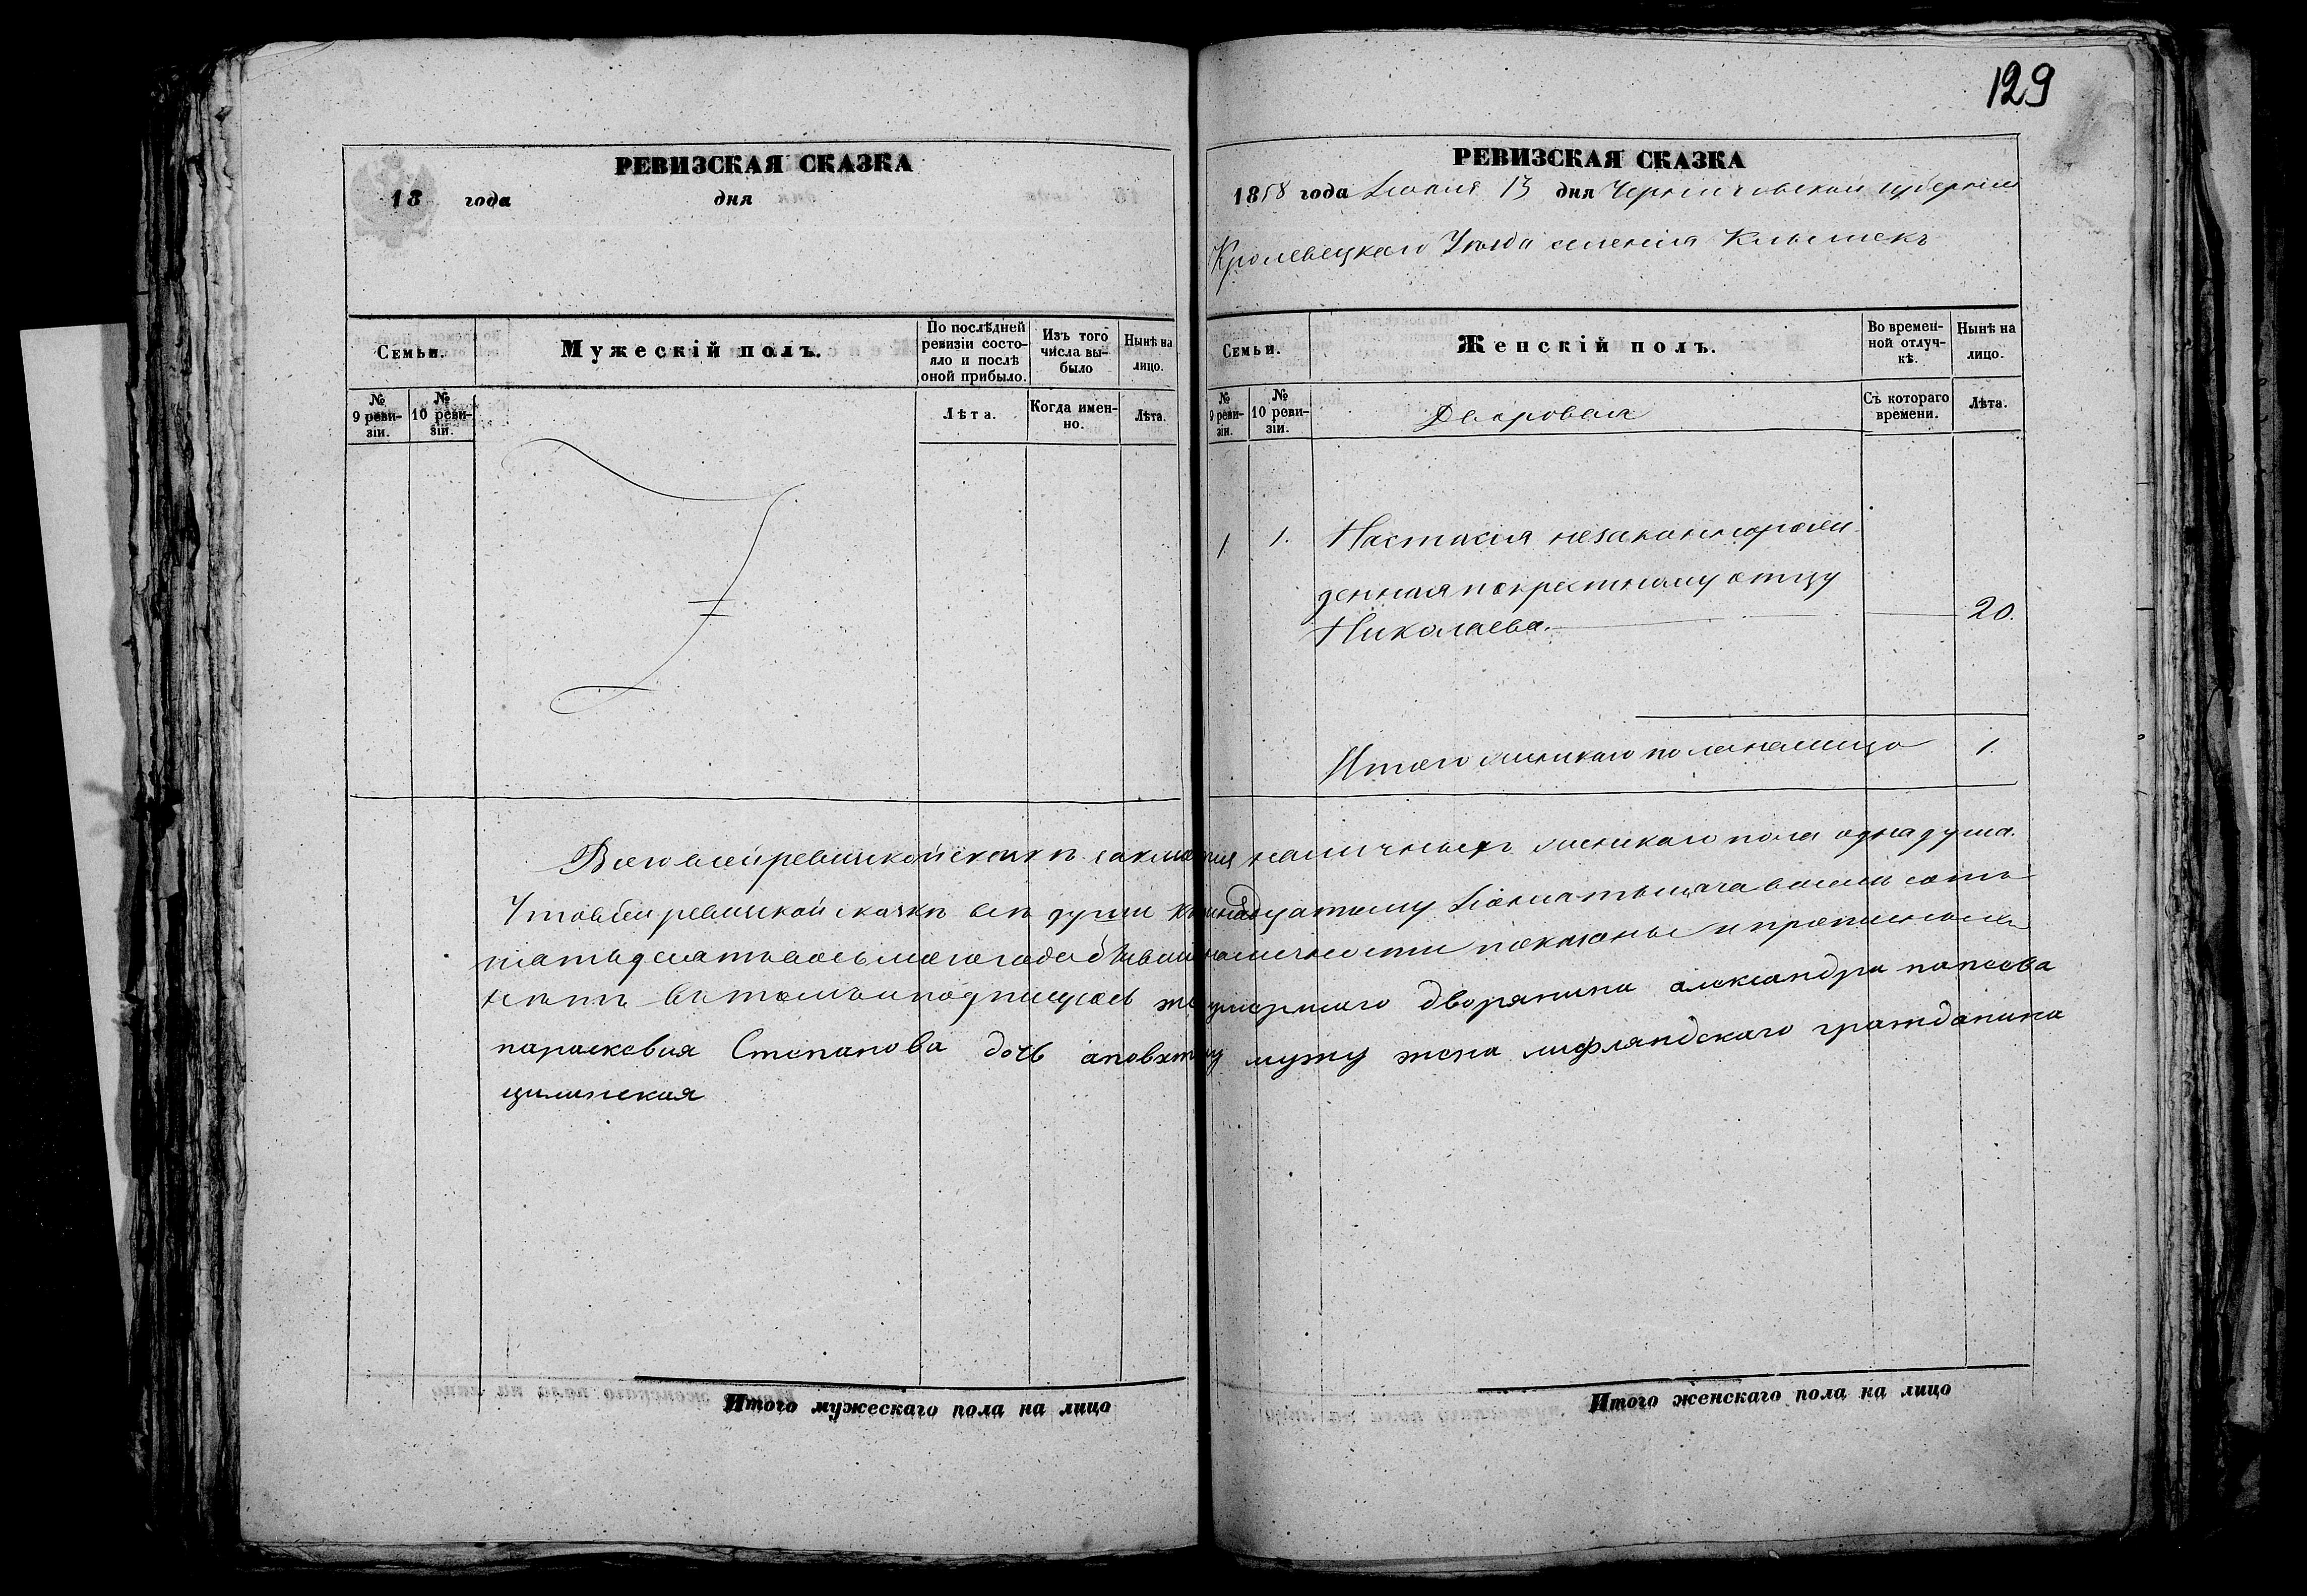 129
РЕВИЗСКАЯ СКАЗКА
18 года дня
Семьи.
Мужескій полъ.
По послѣдней ревизіи состояло и послѣ оной прибыло.
Изъ того числа выбыло
Нынѣ на лицо.
№ 9 ревизіи.
№ 10 ревизіи.
Лѣта.
Когда именно.
Лѣта.
Итого мужескаго пола на лицо
РЕВИЗСКАЯ СКАЗКА
1858 года Іюня 13 дня Черниговской губерніи
Кролевецкаго Уезда селенія Клышекъ
Семьи.
Женскій полъ.
Во временной отлучкѣ.
Нынѣ на лицо.
№ 9 ревизіи.
№ 10 ревизіи.
Дворовая
Съ котораго времени.
Лѣта.
1 1. Настасия незаконнорож
денная по крестному отцу
Николаева. 20.
Итого женскаго пола налицо 1.
Всего в сей ревизской сказкѣ наличныхъ женскаго пола одна душа.
Что в сей ревизской сказкѣ всѣ души Іюня тысяча восемь сотъ
пятьдесятъ восьмого года наличности показаны и прописныхъ
нѣтъ въ томъ и подпишусь умершаго дворянина александра попова
параскевия Степанова дочь а по мужу жена лифляндскаго гражданина
Итого женскаго пола на лицо